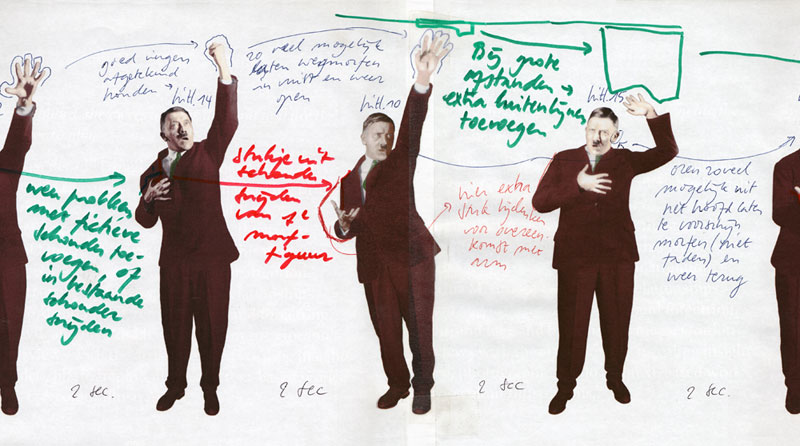 goed vingers
uitgetekend
houden →
hitl. 14
zo veel mogelijk
laten wegmorfen
in niets en weer
open
hitl. 10
Bij grote
afstanden →
extra buitenlijnen
toevoegen
hitl. 15
een probleem
met fictieve
schouder toe-
voegen of
in bestaande
schouder
snijden
stukje uit
schouder
snijden
van 1e
morf-
figuur
hier extra
stuk bijdenken
voor overeen-
komst met
arm
oren zoveel
mogelijk uit
het hoofd laten
te voorschijn
morfen (niet
faden) en
weer terug
2 sec.
2 sec
2 sec
2 sec.